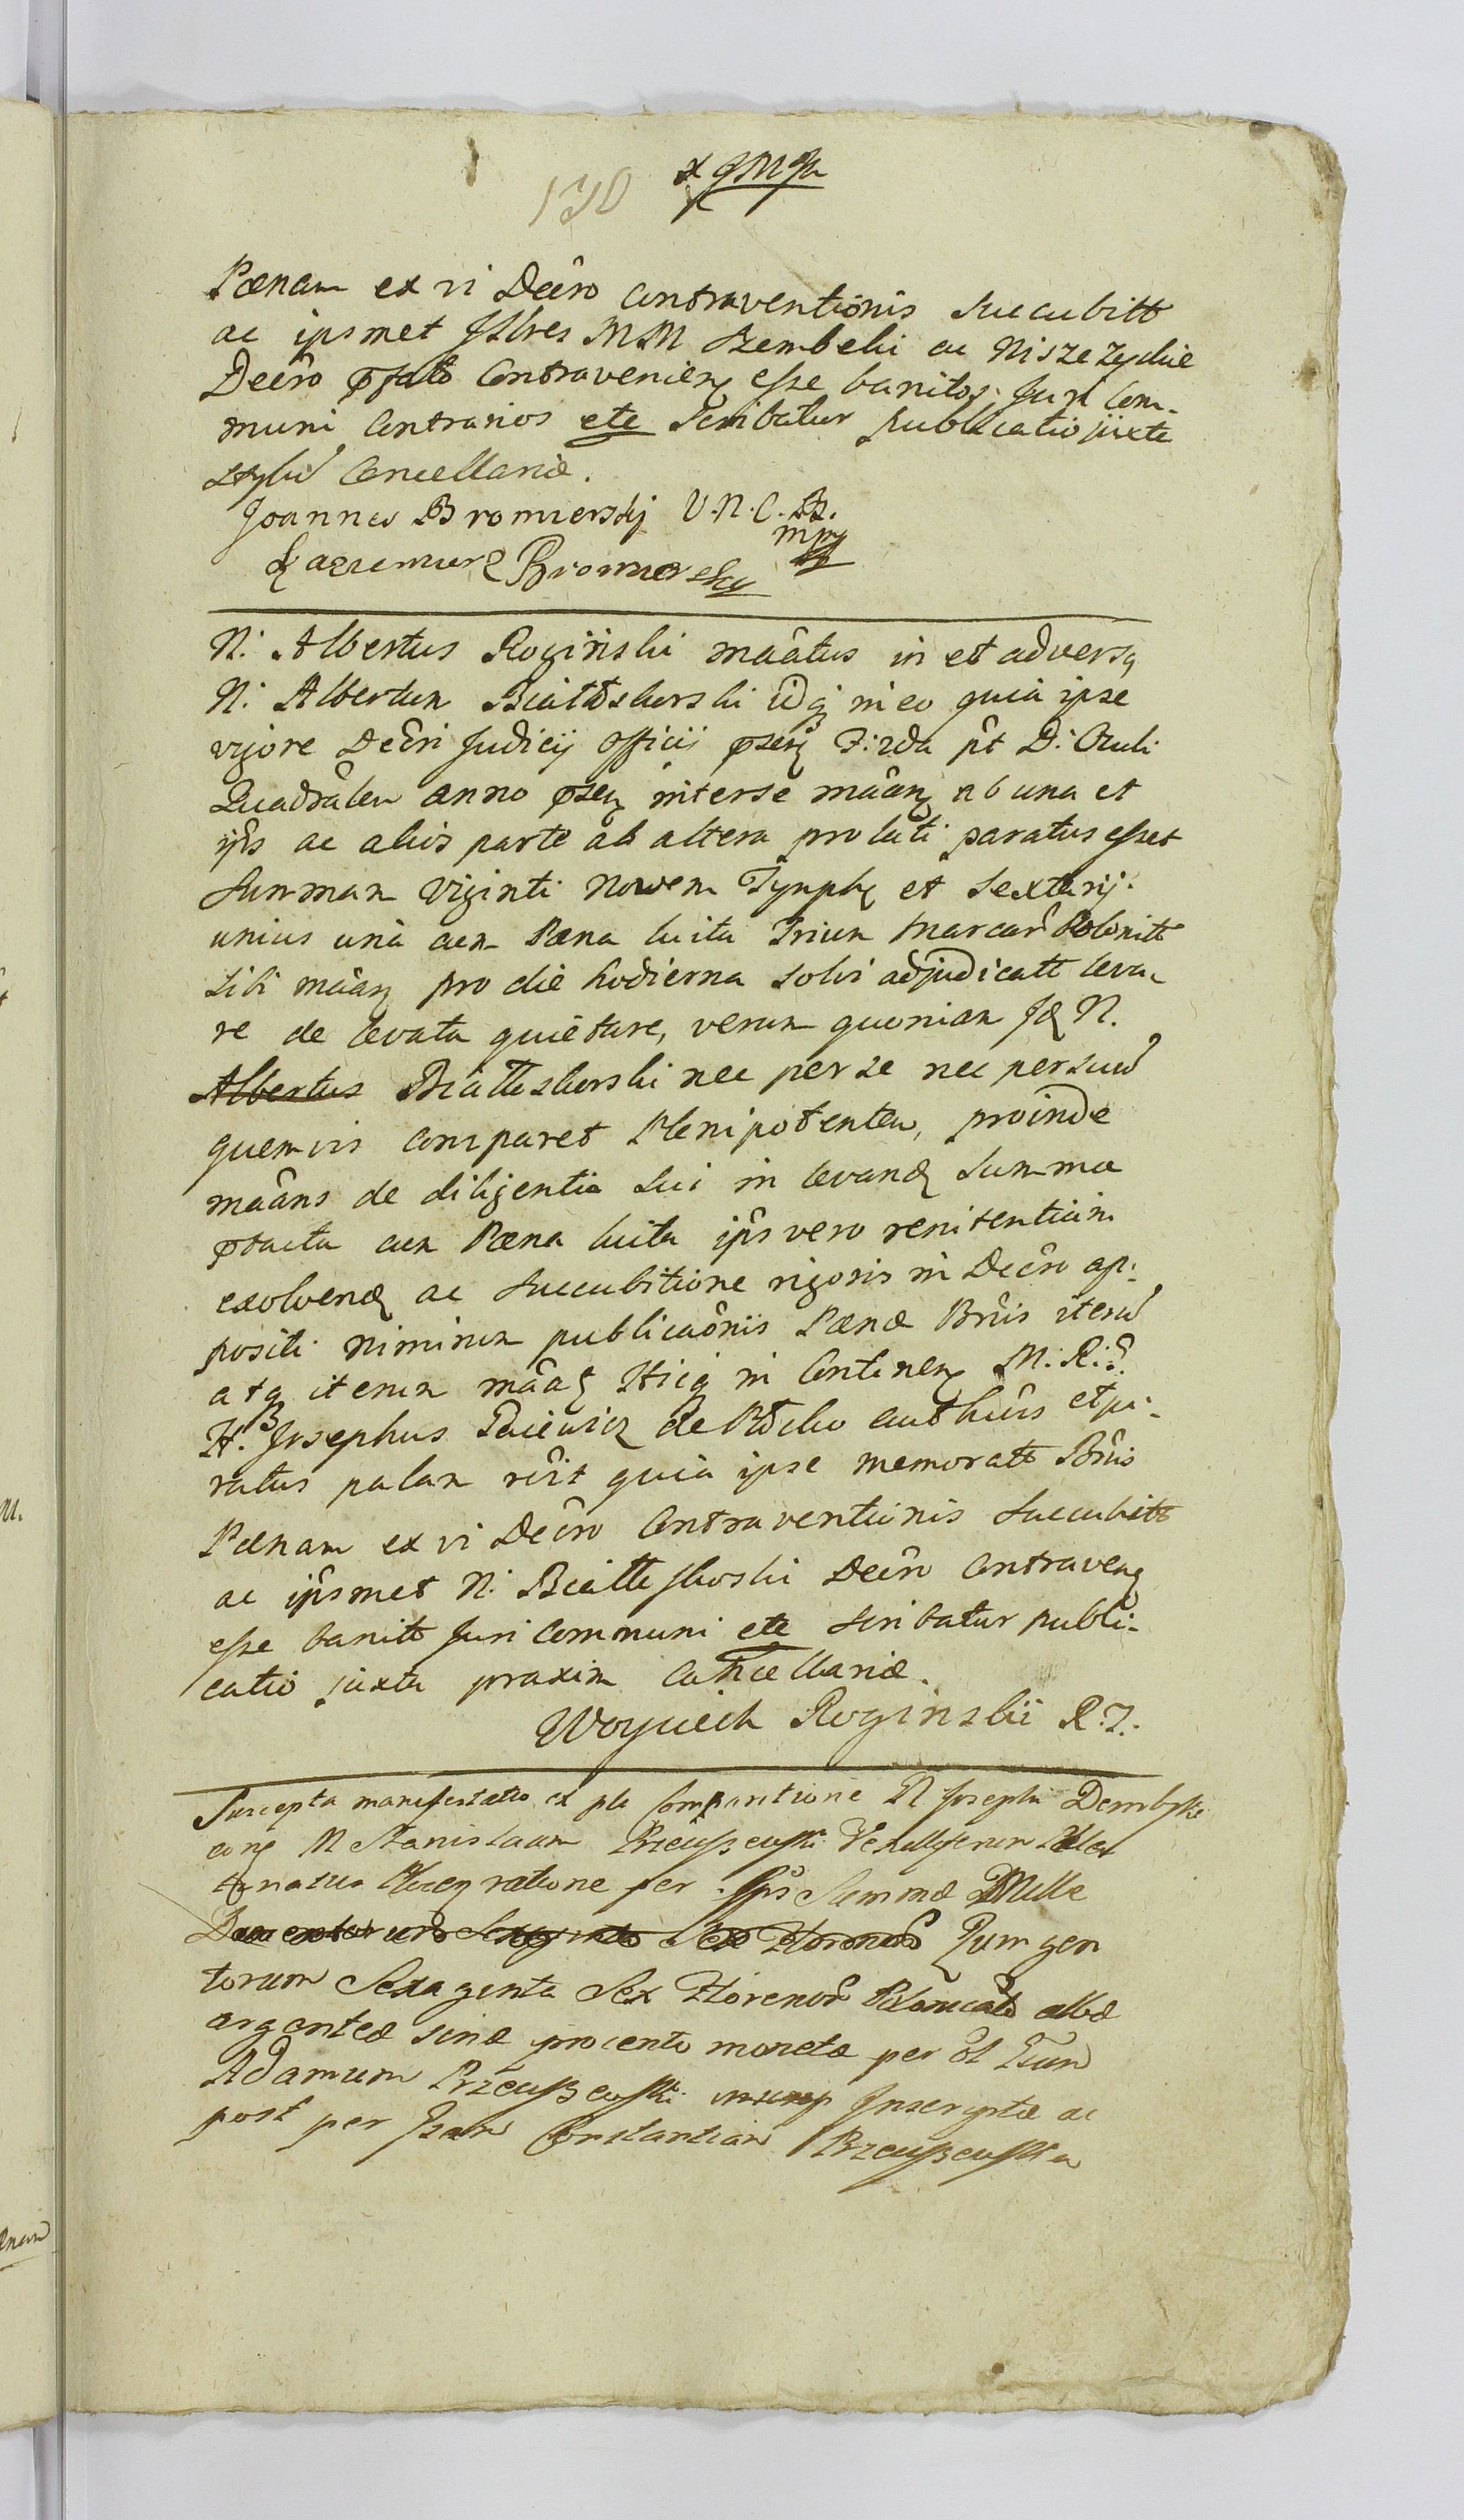 130
Pœnam ex vi Decro contraventionis succubitt
ac ipsmet Illres MM Szembeki ac Niszczyckie
Decro pfato Contravenien esse banitos Juri Com-
muni Contrarios etc Scribatur publicatio juxta
stylu Cancellariæ.
Joannes Bromierskj V.N.C.
mpp
Kazimierz Bromierski
N. Albertus Rogiński maâtus in et advers
N. Albertum Białoskorski idq in eo quia ipse
vigore Decri Judicij Officij psen F: 2da pt D: Oculi
Quadralem anno psen interse maân ab una et
ips ac alios parte ab altera prolati paratus esset
Summam viginti novem Tynph et sextarij
unius unà cum Pæna luita Trium Marcar Polonitt
sibi maân pro die hodierna solvi adjudicatt leva-
re de levata quietare, verum quoniam Id N.
Albertus Białoskorski nec per se nec per suu
quemvis comparet Plenipotentem, proinde
maâns de diligentia sui in levand summa
ptacta cum Pæna luita ips vero renitentiam
exolvend ac succubitione rigoris in Decro ap-
positi nimirum publicaônis Pænæ Bnis iteru
atq iterum maât Hicq in Continen M. R:
H. Josephus Paiewicz de Płocko authûs et ju-
ratus palam rêit quia ipse memoratt Bnis
Pœnam ex vi Decro Contraventionis succubitt
ac ipsmet N. Białoskorski Decro Contraven
esse banitt Juri Communi etc scribatur publi-
catio juxta praxim Cancellariæ.
Woyciech Roginskii R.Z.
Suscepta manifestatio ex pte Comparitione N Josephi Dembski
con N Stanislaum Vexilliferum
ratione per Ips Summæ Mille
Ducentorum Sexaginta Sex Florenor Quingen
torum Sexaginta Sex Florenor Polonicalo albæ
argenteæ sine procento monetæ per ol
Adamum Inscriptæ ac
post per Constantiam